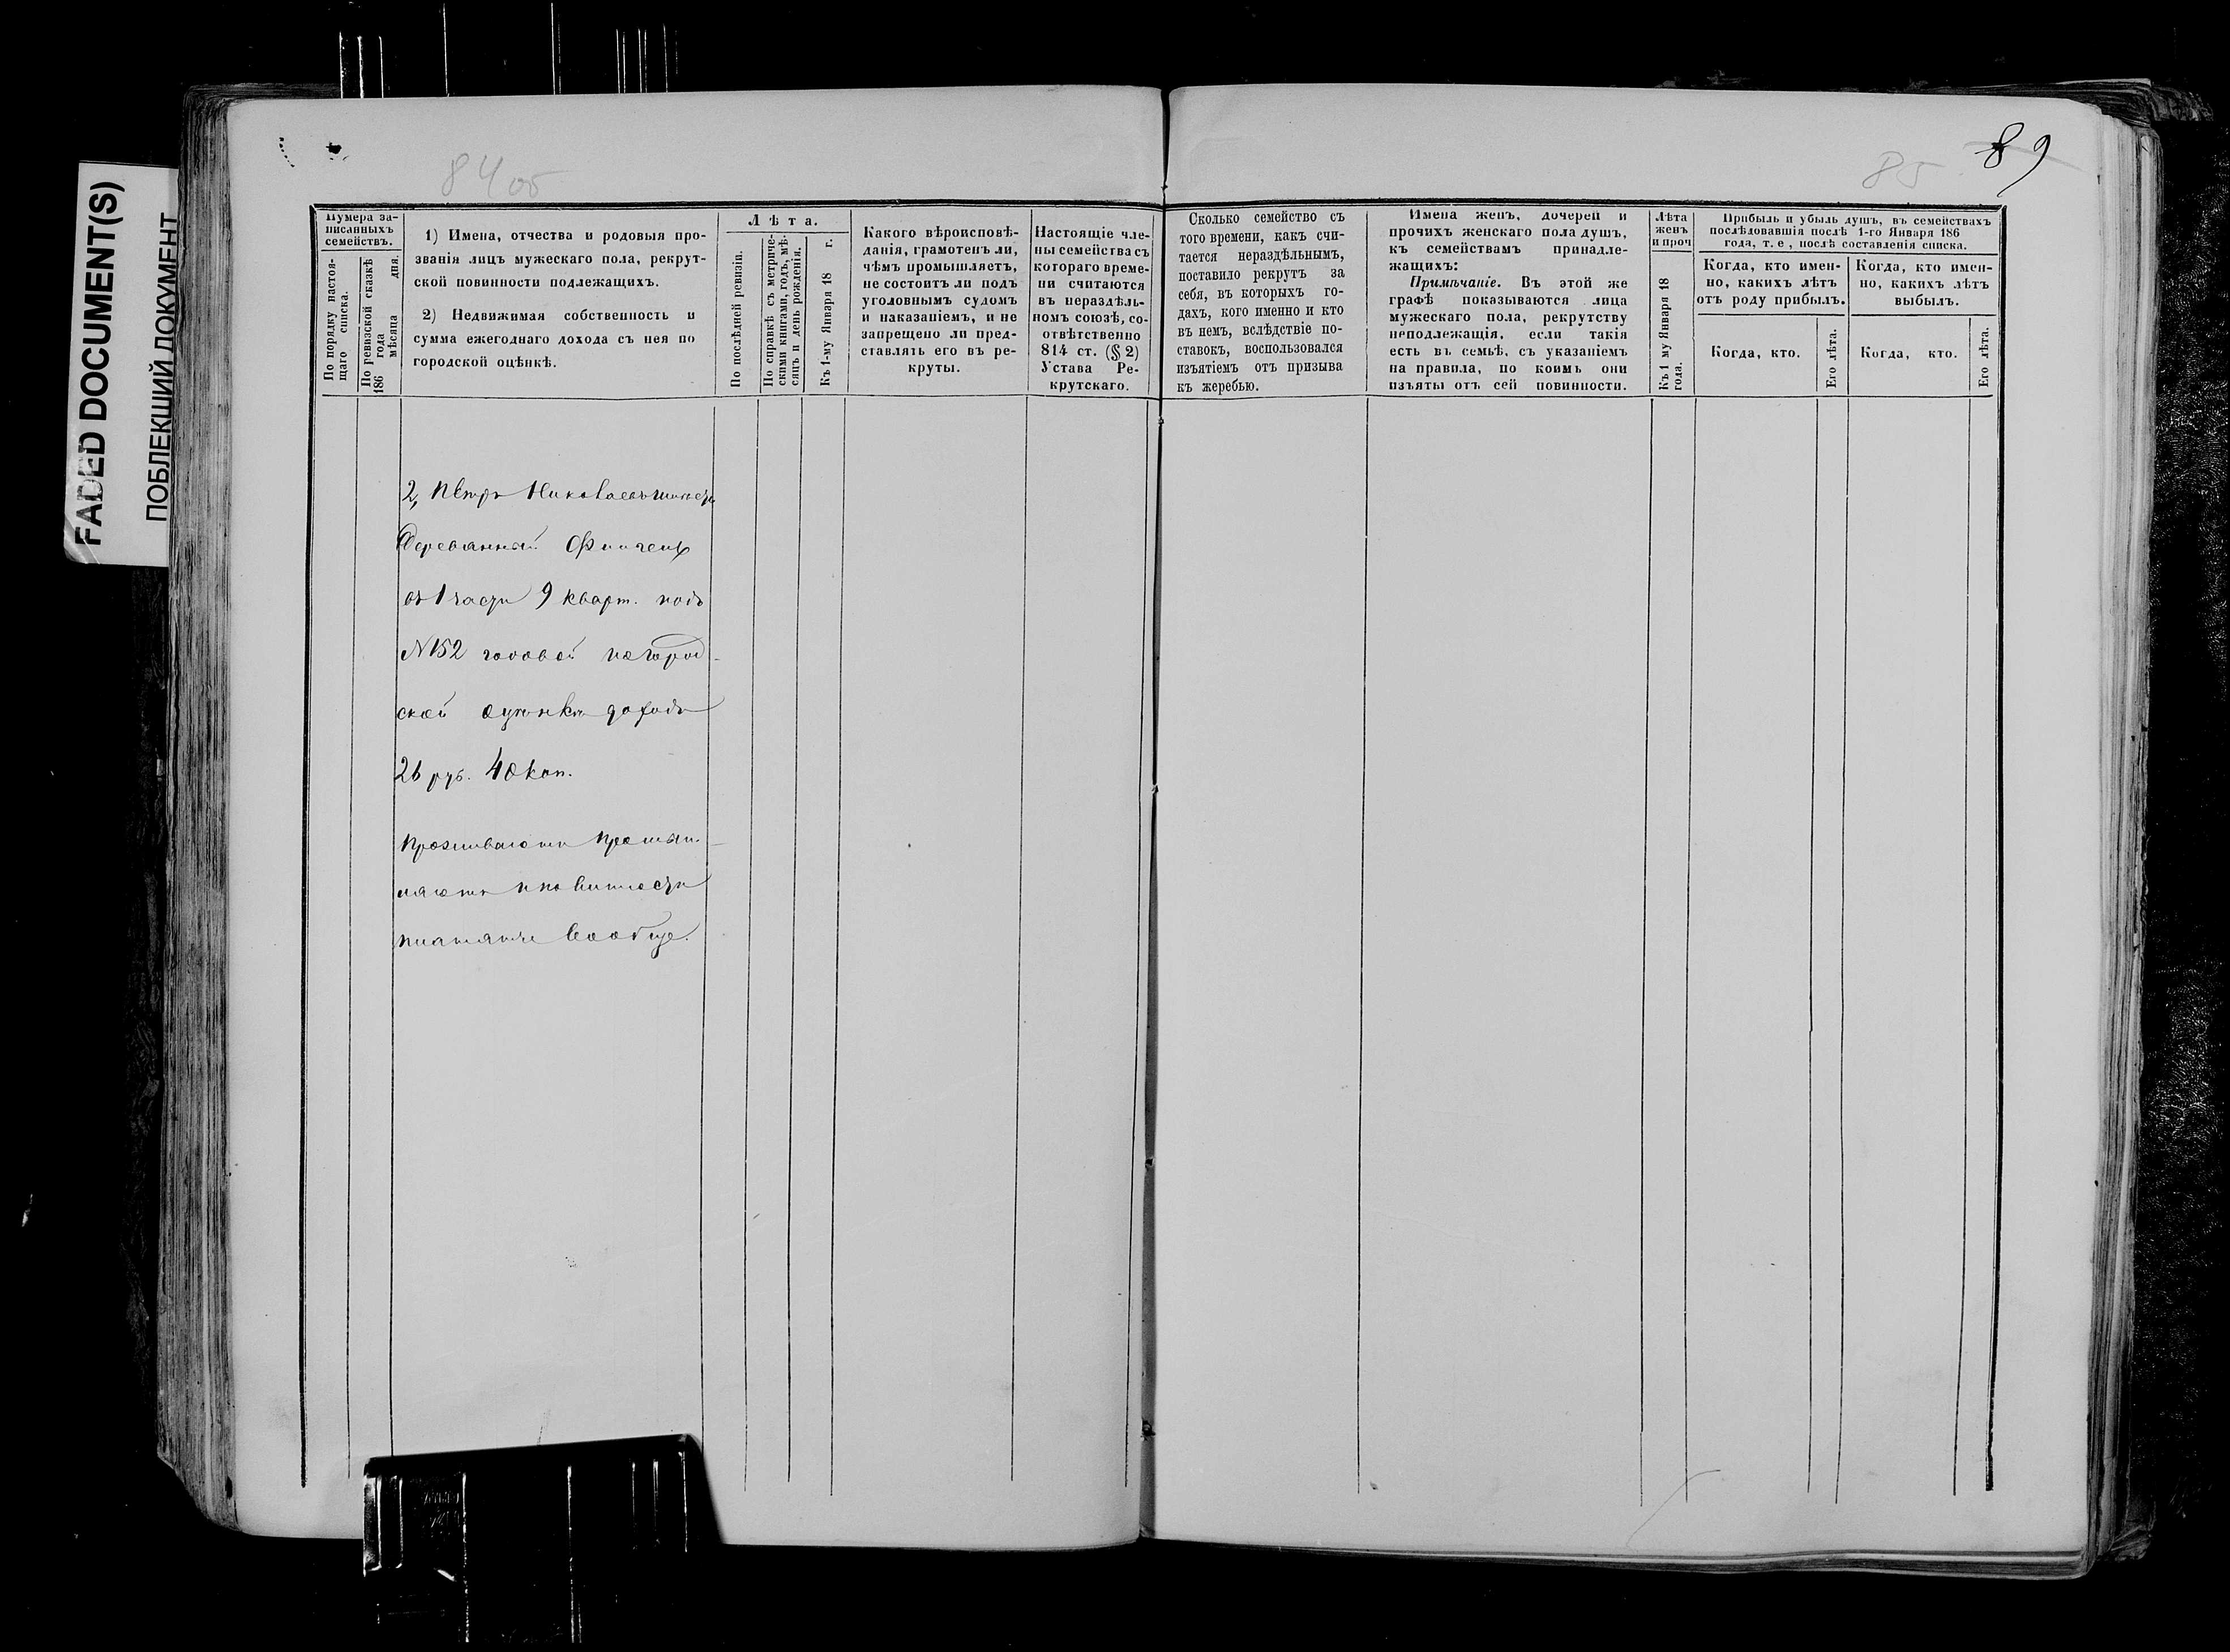 FADED DOCUMENT(S)
ПОБЛЕКШИЙ ДОКУМЕНТ
84 об
85
89
Нумера за-
писанныхъ
семействъ.
По порядку настоя-
щаго списка.
По ревизской сказкѣ
186 года
мѣсяца дня.
1) Имена, отчества и родовыя про-
званія лицъ мужескаго пола, рекрут-
ской повинности подлежащихъ.
2) Недвижимая собственность и
сумма ежегоднаго дохода съ нея по
городской оцѣнкѣ.
Лѣта.
По послѣдней ревизіи.
По справкѣ съ метриче-
скими книгами, годъ, мѣ-
сяцъ и день рожденія.
Къ 1-му Января 18 г.
Какого вѣроисповѣ-
данія, грамотенъ ли,
чѣмъ промышляетъ,
не состоитъ ли подъ
уголовнымъ судомъ
и наказаніемъ, и не
запрещено ли пред-
ставлять его въ ре-
круты.
Настоящіе чле-
ны семейства съ
котораго време-
ни считаются
въ нераздѣль-
номъ союзѣ, со-
отвѣтственно
814 ст. (§ 2)
Устава Ре-
крутскаго.
Сколько семейство съ
того времени, какъ счи-
тается нераздѣльнымъ,
поставило рекрутъ за
себя, въ которыхъ го-
дахъ, кого именно и кто
въ немъ, вслѣдствіе по-
ставокъ, воспользовался
изъятіемъ отъ призыва
къ жеребью.
Имена женъ, дочерей и
прочихъ женскаго пола душъ,
къ семействамъ принадле-
жащихъ:
Примѣчаніе. Въ этой же
графѣ показываются лица
мужескаго пола, рекрутству
неподлежащія, если такія
есть въ семьѣ, съ указаніемъ
на правила, по коимъ они
изъяты отъ сей повинности.
Лѣта
женъ
и проч
Къ 1 му Января 18
года.
Прибыль и убыль душъ, въ семействахъ
послѣдовавшія послѣ 1-го Января 186
года, т. е., послѣ составленія списка.
Когда, кто имен-
но, какихъ лѣтъ
отъ роду прибылъ.
Когда, кто.
Его лѣта.
Когда, кто имен-
но, какихъ лѣтъ
выбылъ.
Когда, кто.
Его лѣта.
2, Петръ Николаевъ имѣетъ
Деревянный Флигель
въ 1 части 9 кварт. подъ
N 152 годовой по город-
ской оцѣнкѣ доходъ
26 руб. 40 коп.
Проживаютъ промыш-
ляютъ и повинности
платятъ вообще.